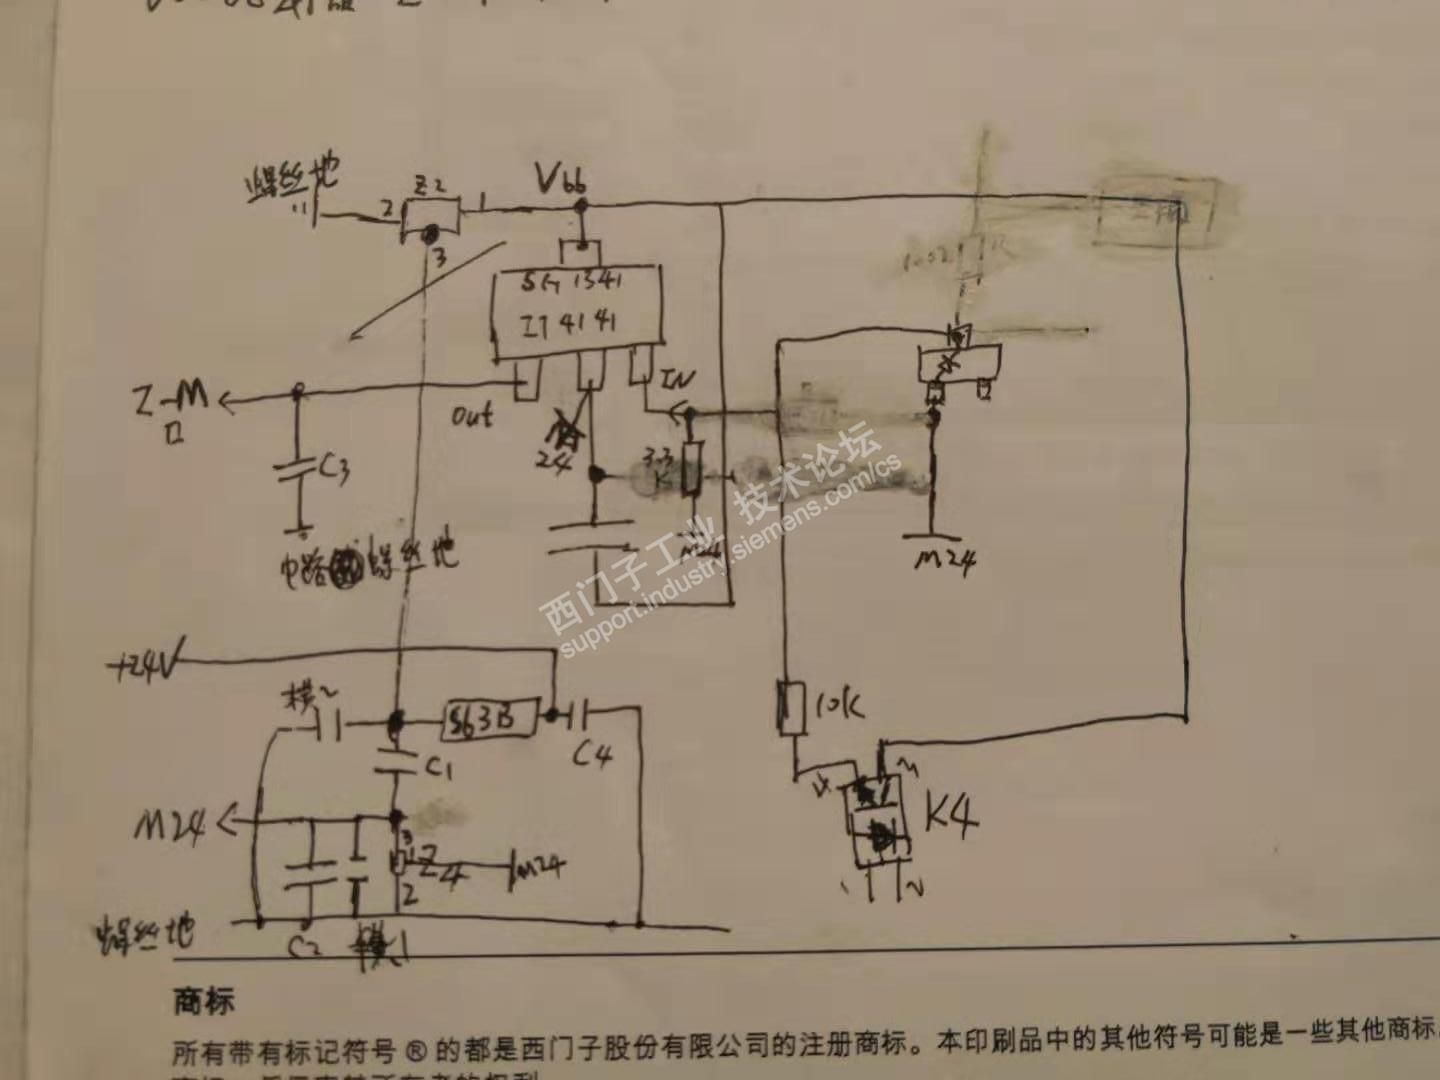 螺丝地
Z2
2
1
3
Vbb
SG 1341
IT 4141
Z-M
口
out
IN
24
3.3
K
C3
M24
M24
电路 螺丝地
西门子工业 技术论坛
support.industry.siemens.com/cs
+24V
横2
S63B
C1
C4
10K
K4
M24
3
Z4
2
M24
螺丝地
C2
横1
商标
所有带有标记符号 ® 的都是西门子股份有限公司的注册商标。本印刷品中的其他符号可能是一些其他商标